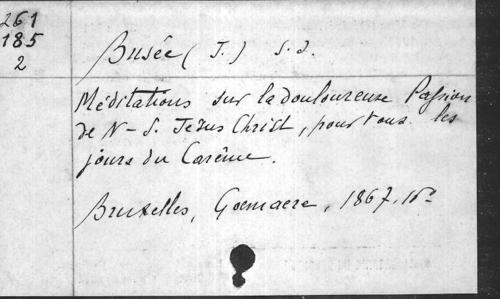 261
185
2
Busée (J.) S. J.
Méditations sur la douloureuse Passion
de N-S. Jésus Christ, pour tous les
jours du Carême.
Bruxelles, Goemaere, 1867, 16º